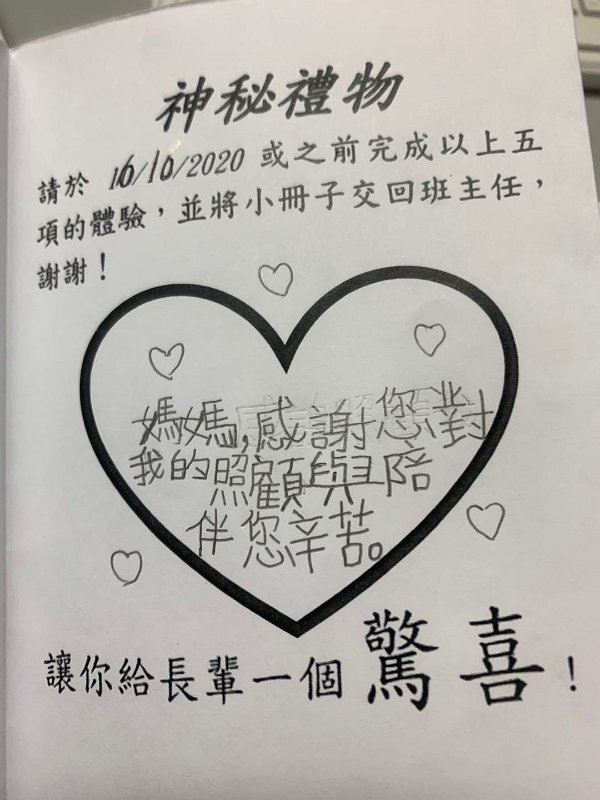 神秘禮物
請於 16/10/2020 或之前完成以上五
項的體驗，並將小冊子交回班主任，
謝謝！
媽媽,感謝您對
我的照顧與陪
伴您辛苦。
讓你給長輩一個驚喜！